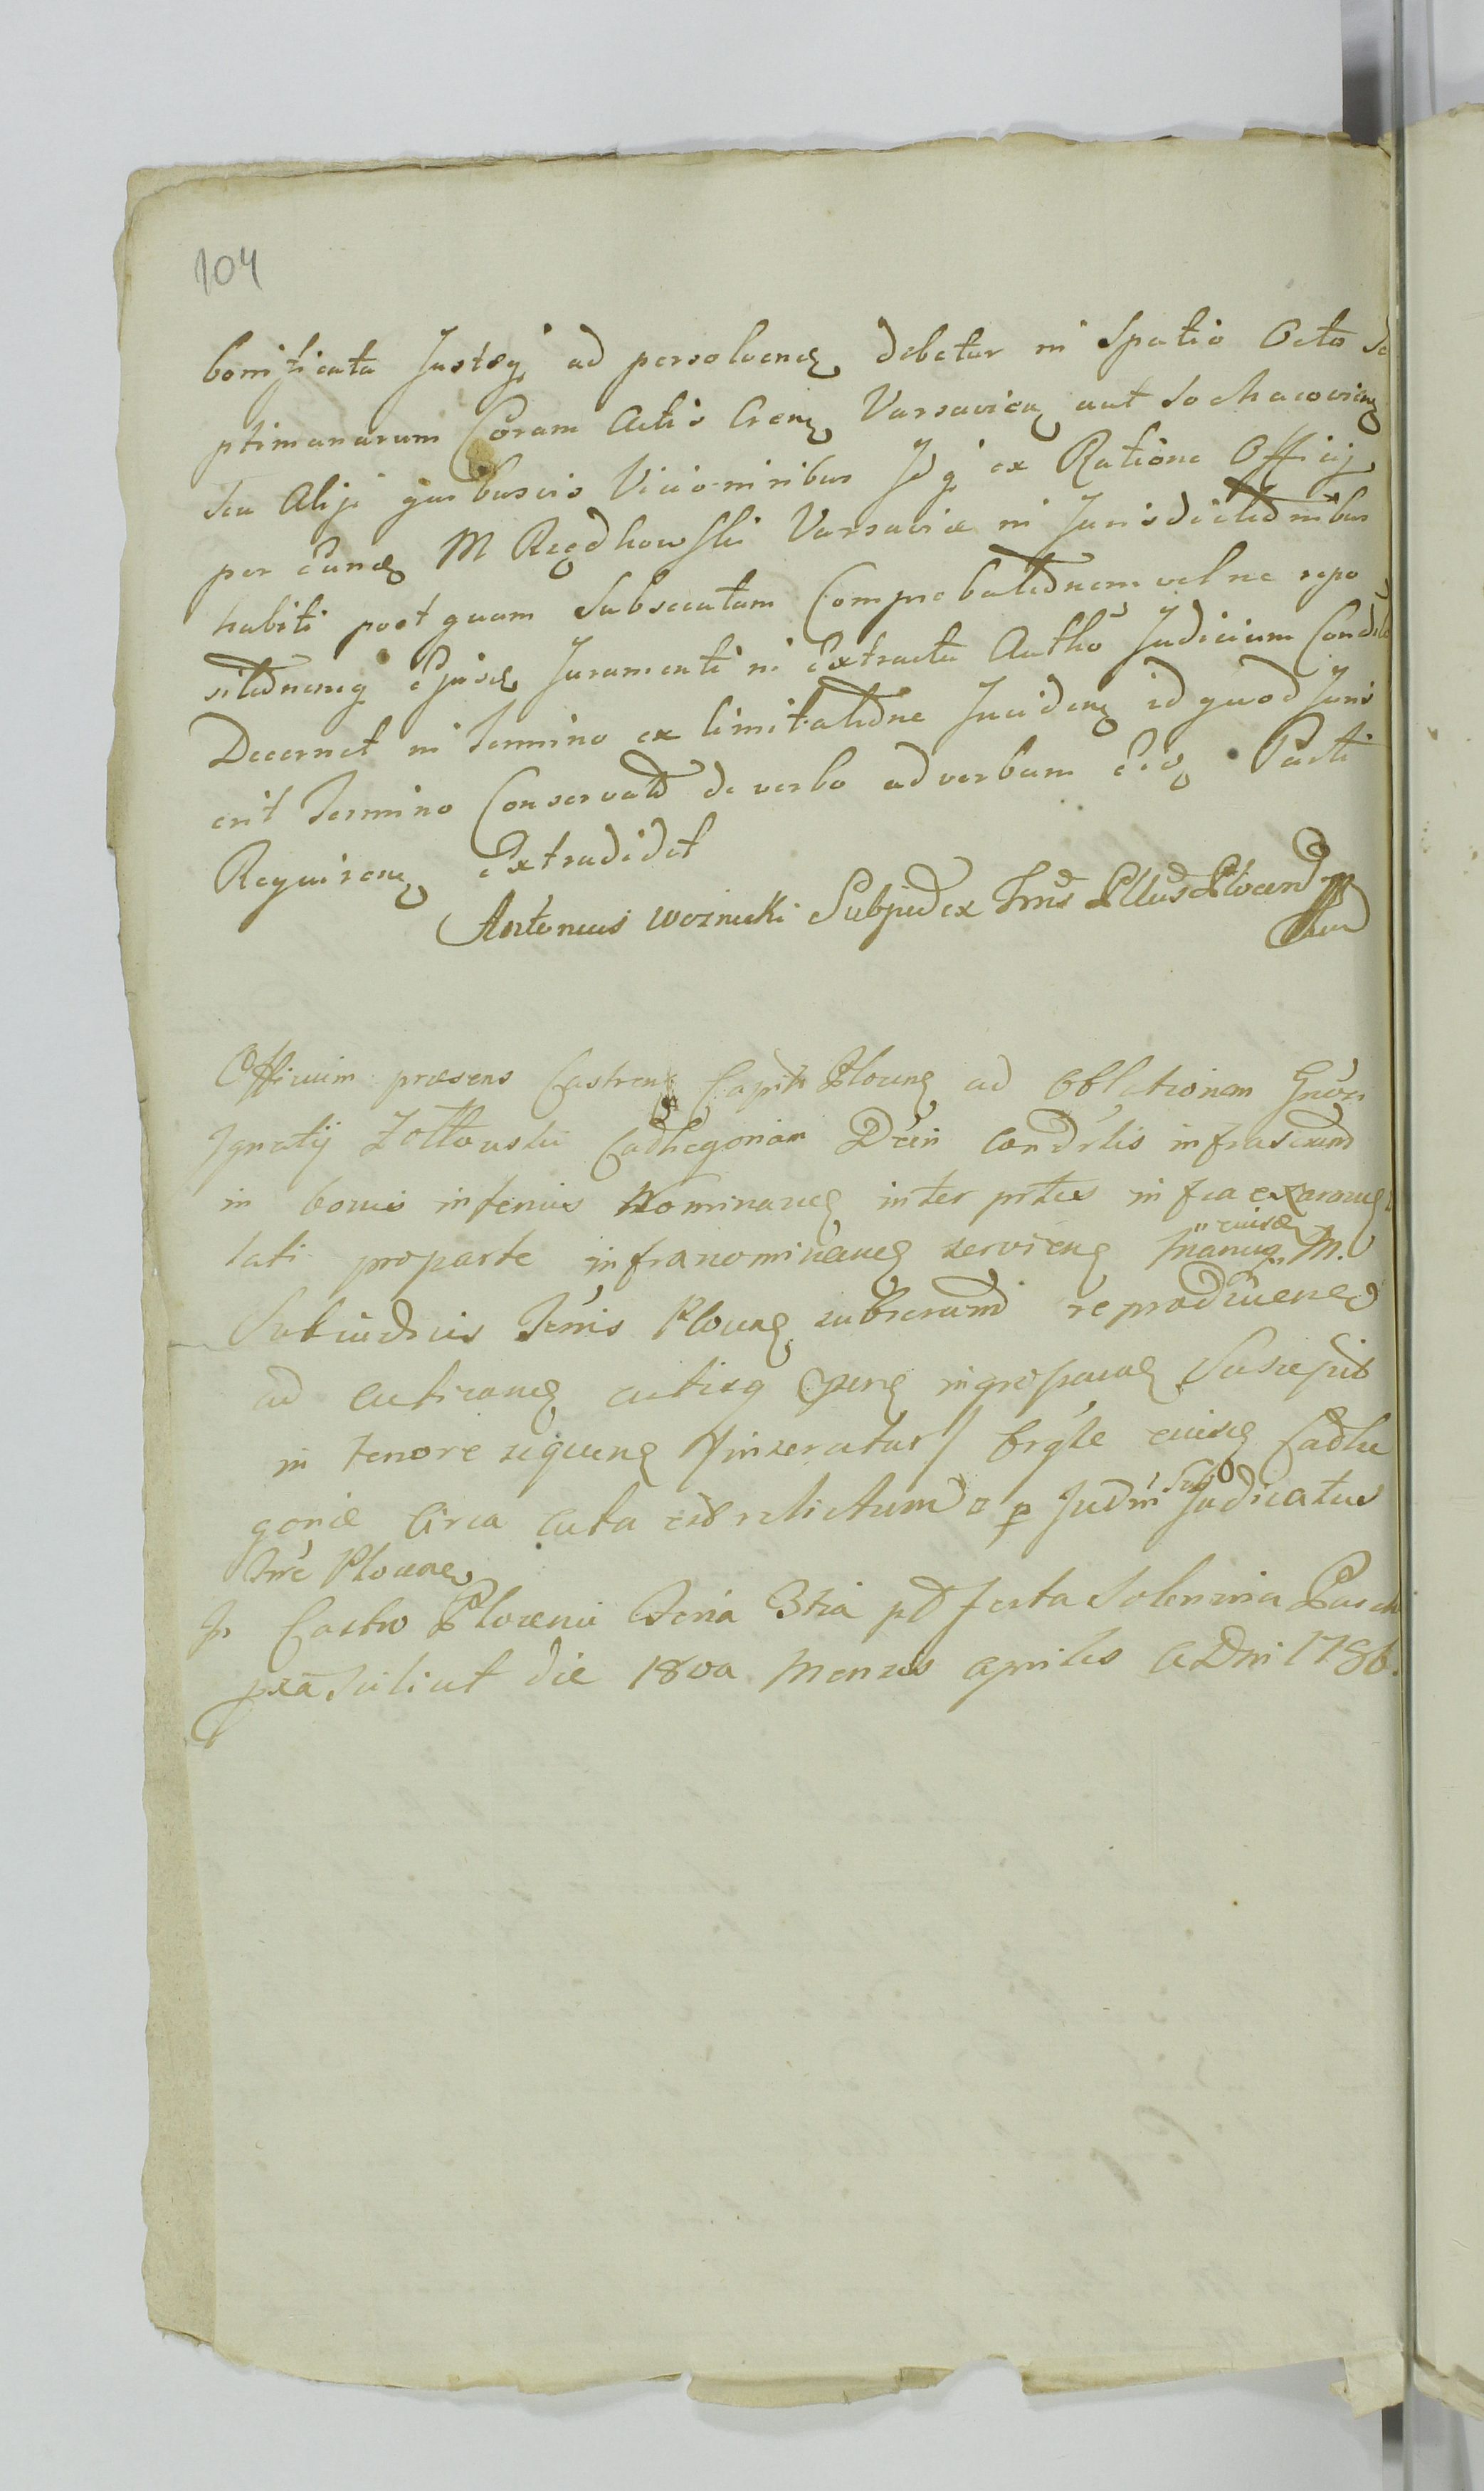 104
bonificata Justæq ad persolvenꝫ debetur in Spatio Octo Se
ptimanarum Coram Actis Crenꝫ Varsavienꝫ aut Sochacovienꝫ
seu Alijs quibusvis Vicinioribus Idq ex Ratione Officij
per eundꝫ M Regdhowski Varsaviæ in Jurisdictionibus
habiti post quam Subsecutam Comprobationem vel ne repo
sitionemq Ejusdꝫ Juramenti in Extractu Autho Judicium Condel
Decernet in Termino ex limitatione Incidenꝫ id quod Juris
erit Termino Conservato de verbo ad verbum Eidꝫ Parti
Requirenꝫ Extradidit
Antonius Woznicki Subjudex Trris Pltus Plocen
Officium præsens Castrenꝫ Capit Plocenꝫ ad Oblationem Gnosi
Ignatij Zołtowski Cadhegoriam Decⁿ condⁱlis infrascrund
in bonis inferius Nominanꝫ inter prtes infra exaranꝫ
lati pro parte infranominanꝫ servienꝫ Manuq eiusdꝫ M.
Subiudicis Trris Plocenꝫ subscrund reproducenꝫ
ad acticanꝫ actisq suscepit
in tenore sequenꝫ /inseratur/ Orgle eiusdꝫ Cadhe
goriæ circa acta est relictum p Judm Sub Judicatus
Trre Plocenꝫ
In Castro Plocensi Feria 3tia pt festa Solennia Pasch
scilicet die 18va Mensis aprilis A Dni 1786.